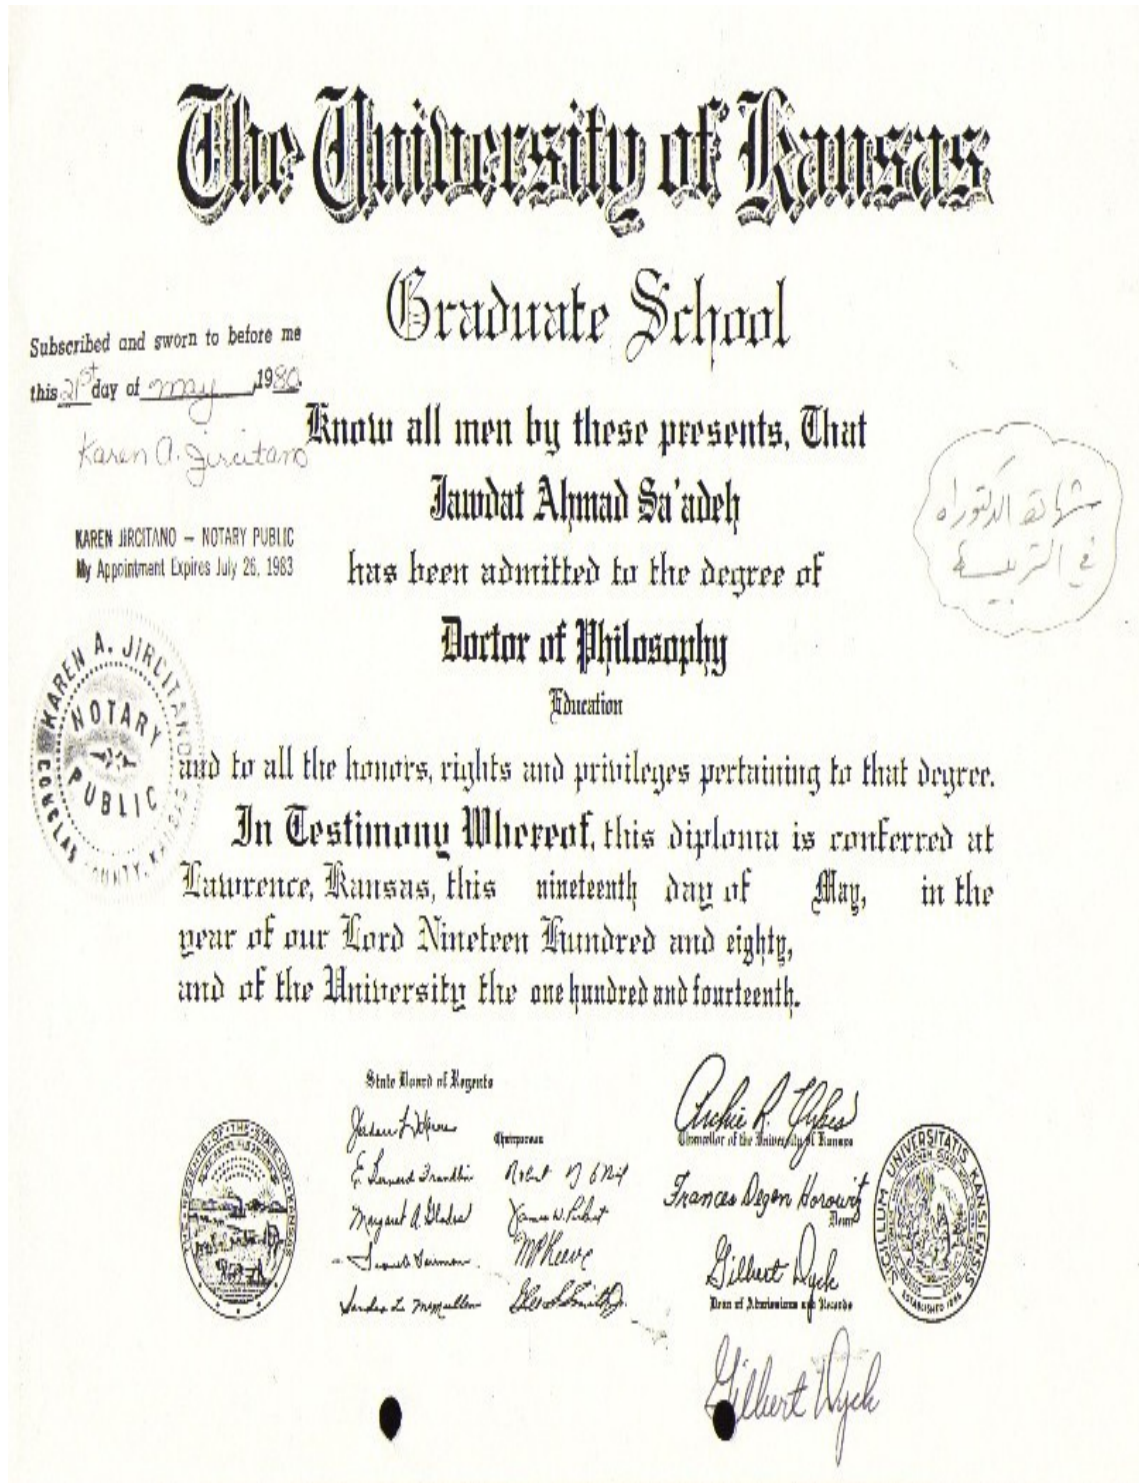 The University of Kansas
Graduate School
Subscribed and sworn to before me
this 21st day of May, 1980.
Karen A. Jircitano
KAREN JIRCITANO — NOTARY PUBLIC
My Appointment Expires July 26, 1983
KAREN A. JIRCITANO
NOTARY
PUBLIC
COUNTY,
Know all men by these presents, That
Jawdat Ahmad Sa'adeh
has been admitted to the degree of
Doctor of Philosophy
Education
شهادة الدكتوراه
في التربية
and to all the honors, rights and privileges pertaining to that degree.
In Testimony Whereof, this diploma is conferred at
Lawrence, Kansas, this nineteenth day of May, in the
year of our Lord Nineteen Hundred and eighty,
and of the University the one hundred and fourteenth.
State Board of Regents
Chairperson
Margaret A.
Sandra L. McMullen
Archie R. Dykes
Chancellor of the University of Kansas
Frances Degen Horowitz
Dean
Gilbert Dyck
Dean of Admissions and Records
THE REGENTS OF THE STATE OF KANSAS
SIGILLUM UNIVERSITATIS KANSIENSIS
ESTABLISHED
Gilbert Dyck